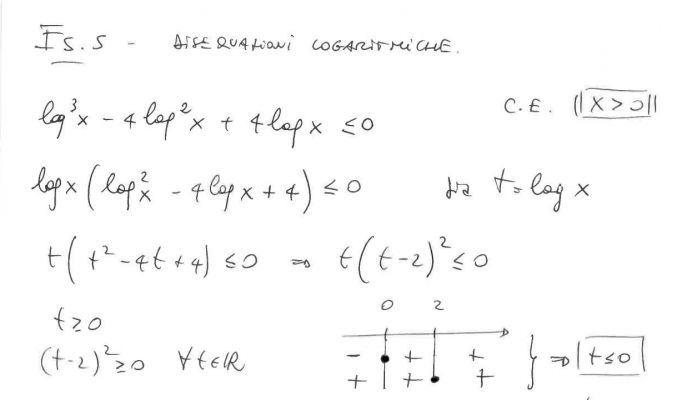 Es. 5 - DISEQUAZIONI LOGARITMICHE.
log³x - 4 log²x + 4 log x ≤ 0 C.E. || x > 0 ||
log x ( log²x - 4 log x + 4 ) ≤ 0 da t = log x
t ( t² - 4t + 4 ) ≤ 0 ⇒ t ( t - 2 )² ≤ 0
0 2
t ≥ 0
- + +
(t - 2)² ≥ 0 ∀ t ∈ ℝ
+ + +
} ⇒ t ≤ 0